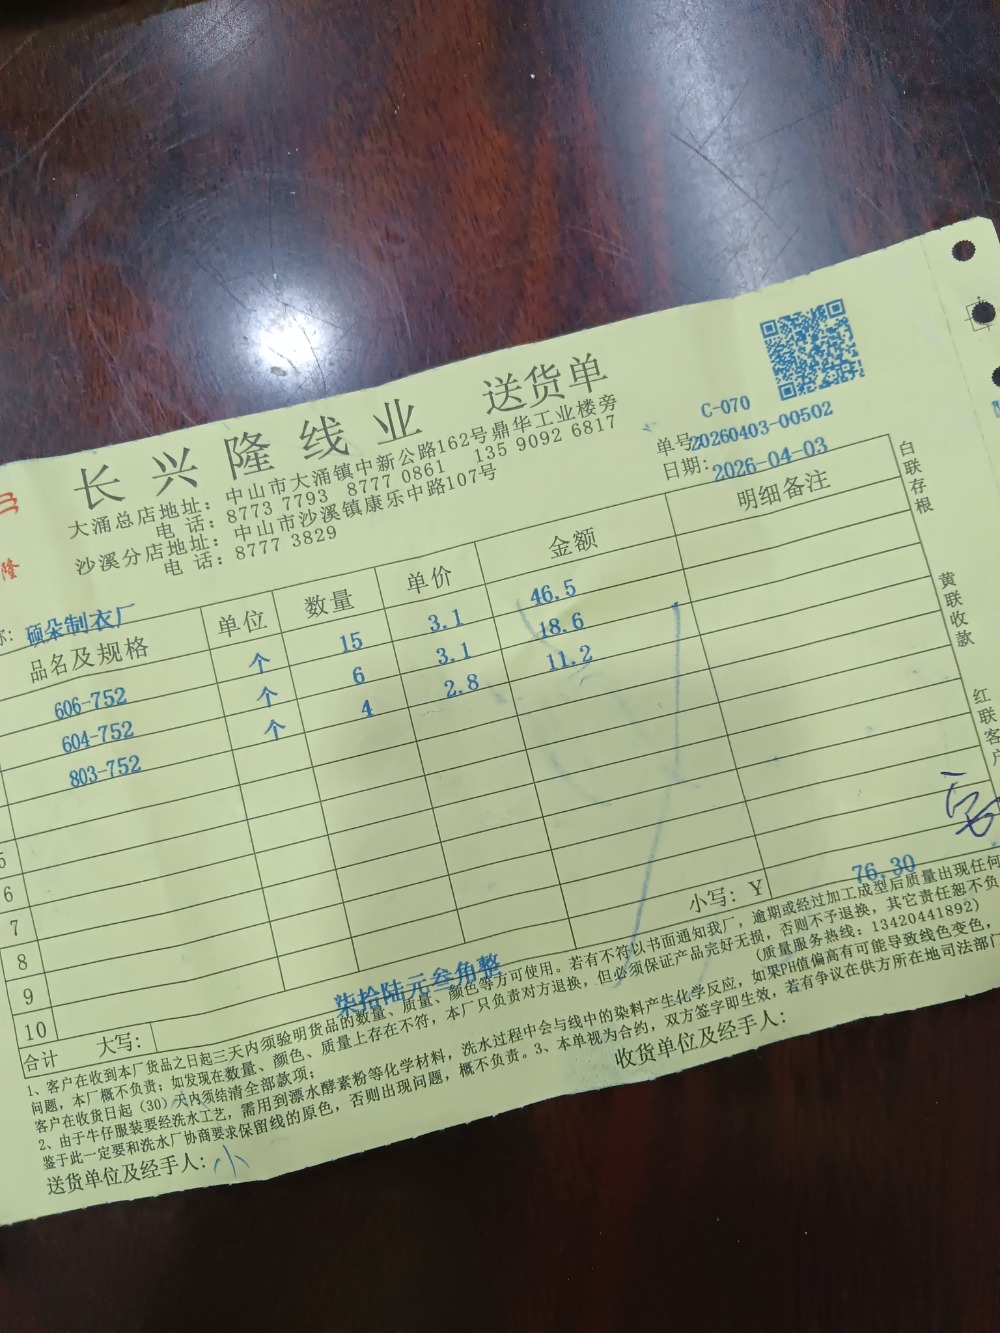 长兴隆线业 送货单
大涌总店地址：中山市大涌镇中新公路162号鼎华工业楼旁
电 话：8773 7793 8777 0861 135 9092 6817
沙溪分店地址：中山市沙溪镇康乐中路107号
电 话：8777 3829
C-070
单号 20260403-00502
日期：2026-04-03
隆
称：硕朵制衣厂
品名及规格 单位 数量 单价 金额 明细备注
606-752 个 15 3.1 46.5
604-752 个 6 3.1 18.6
803-752 个 4 2.8 11.2
5
6
7
8
9
10
合计 大写： 柒拾陆元叁角整 小写：￥ 76.30
1、客户在收到本厂货品之日起三天内须验明货品的数量、质量、颜色等方可使用。若有不符以书面通知我厂，逾期或经过加工成型后质量出现任何
问题，本厂概不负责；如发现在数量、颜色、质量上存在不符，本厂只负责对方退换，但必须保证产品完好无损，否则不予退换，其它责任恕不负
客户在收货日起（30）天内须结清全部款项； （质量服务热线：13420441892）
2、由于牛仔服装要经洗水工艺，需用到漂水酵素粉等化学材料，洗水过程中会与线中的染料产生化学反应，如果PH值偏高有可能导致线色变色，
鉴于此一定要和洗水厂协商要求保留线的原色，否则出现问题，概不负责。3、本单视为合约，双方签字即生效，若有争议在供方所在地司法部门
送货单位及经手人：小
收货单位及经手人：
白联存根
黄联收款
红联客户